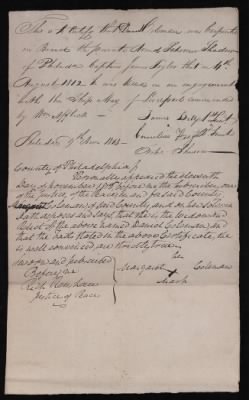 This is to Certify that Daniel Coleman was Carpenter
on Board the private Armed Schooner Shadow
of Philada Captain James Taylor that on 4th
August 1812 he was killed in an engagement
with the Ship May of Liverpool commanded
by Wm Affleck
James 1st Lieut
Philada 9th Novr 1813
County of Philadelphia
Personally appeared the eleventh
Day of November 1813 before me the subscriber, one
of the Justices of the Peace in and for said County
Margaret Coleman of said County, and on her Solemn
Oath deposes and says that she is the widow and
relict of the above named Daniel Coleman, and
that the facts stated in the above Certificate, she
is well convinced are strictly true.
Sworn and subscribed
Before me
Justice of Peace
her
Margaret + Coleman
mark